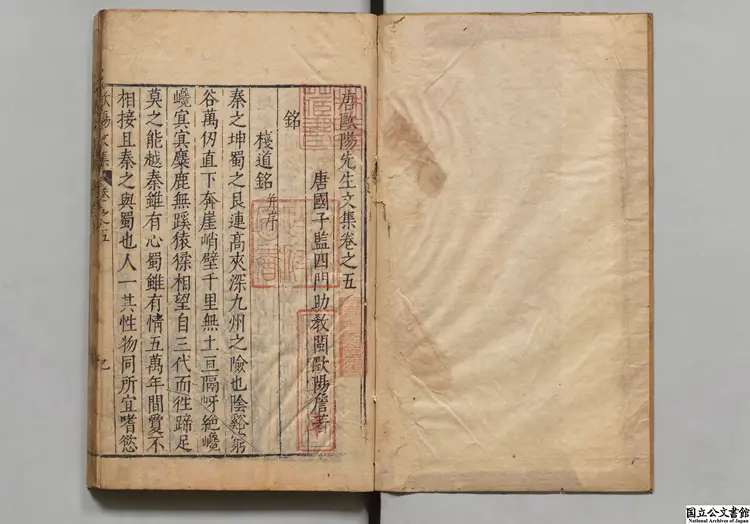 唐歐陽先生文集卷之五
唐國子監四門助敎閩歐陽詹著
銘
棧道銘并序
秦之坤蜀之艮連高夾深九州之險也陰谿窮
谷萬仞直下奔崖峭壁千里無土亘隔呀絶巉
巉冥冥麋鹿無蹊猿猱相望自三代而往蹄足
莫之能越秦雖有心蜀雖有情五萬年間夐不
相接且秦之與蜀也人一其性物同所宜嗜慾
歐陽文集
卷之五
国立公文書館
National Archives of Japan